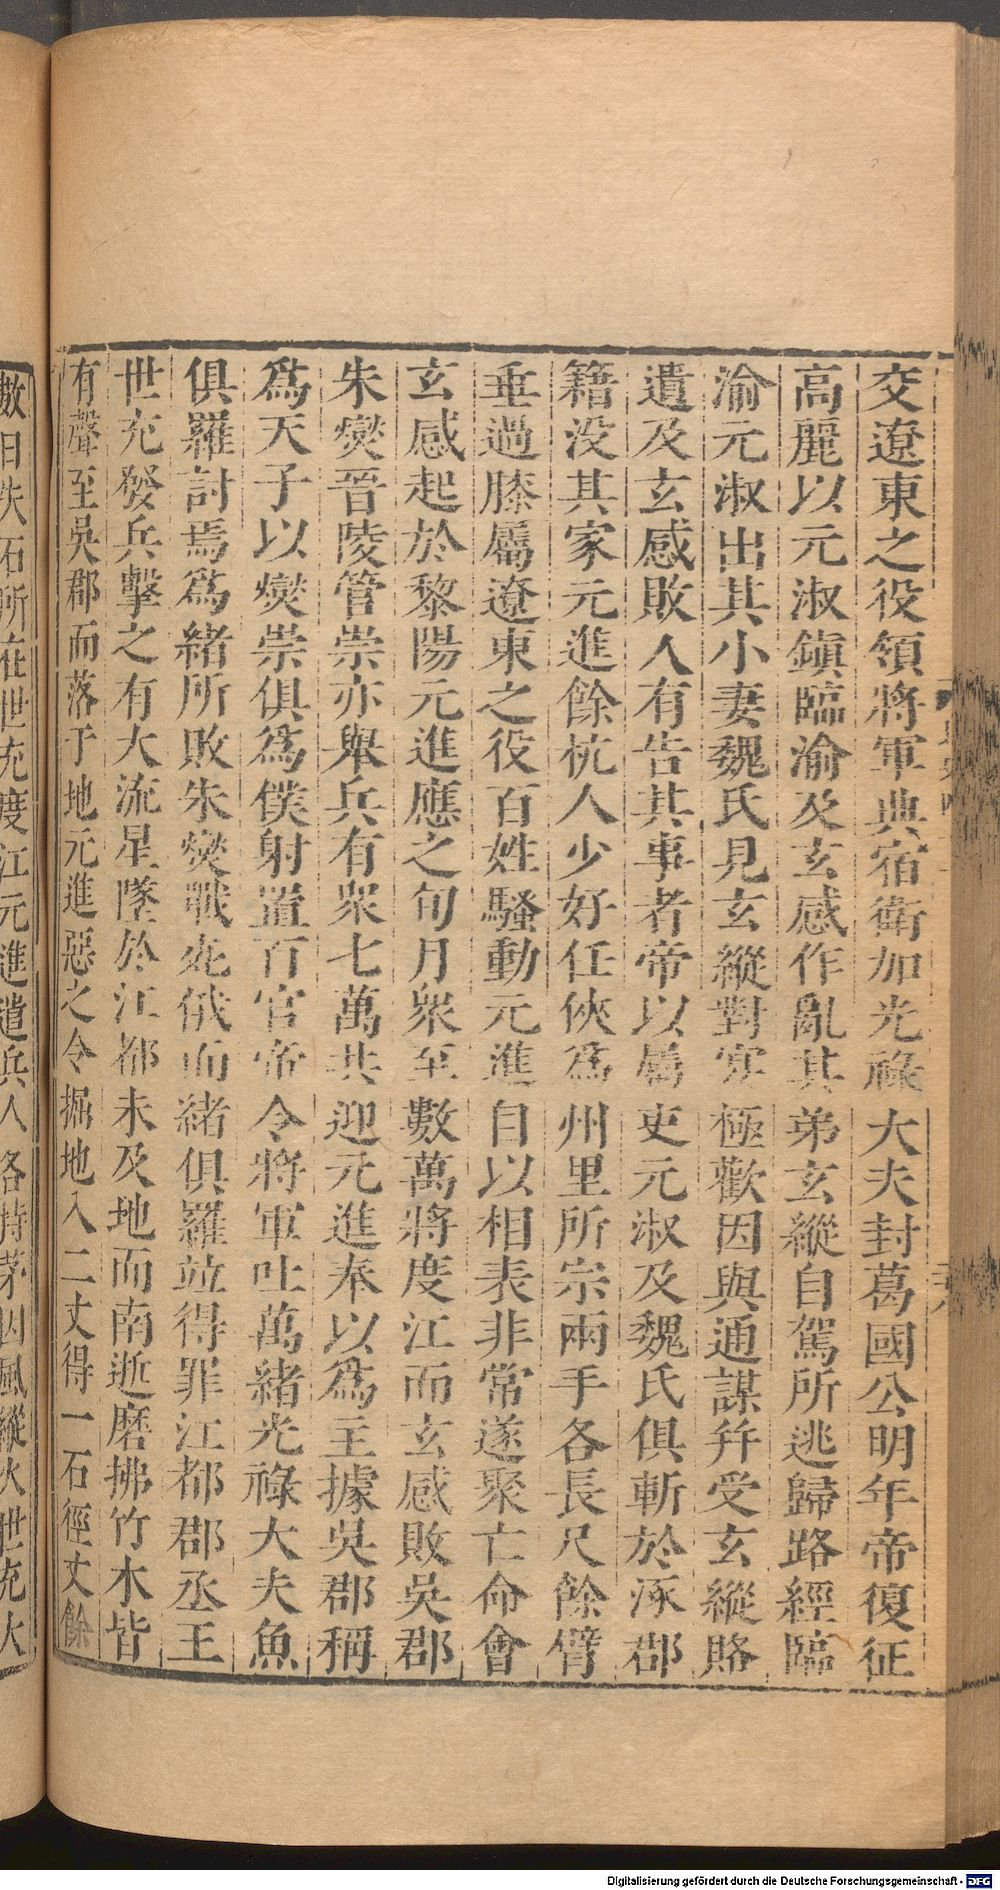 交遼東之役領將軍典宿衛加光祿大夫封葛國公明年帝復征
高麗以元淑鎭臨渝及玄感作亂其弟玄縱自駕所逃歸路經臨
渝元淑出其小妻魏氏見玄縱對穽極歡因與通謀幷受玄縱賂
遺及玄感敗人有告其事者帝以屬吏元淑及魏氏俱斬於涿郡
籍没其家元進餘杭人少好任俠爲州里所宗兩手各長尺餘臂
垂過膝屬遼東之役百姓騷動元進自以相表非常遂聚亡命會
玄感起於黎陽元進應之旬月衆至數萬將度江而玄感敗吳郡
朱燮晉陵管崇亦舉兵有衆七萬共迎元進奉以爲主據吳郡稱
爲天子以燮崇俱爲僕射置百官帝令將軍吐萬緒光祿大夫魚
俱羅討焉爲緒所敗朱燮戰死俄而緒俱羅竝得罪江都郡丞王
世充發兵擊之有大流星墜於江都未及地而南逝磨拂竹木皆
有聲至吳郡而落于地元進惡之令掘地入二丈得一石徑丈餘
數日失石所在世充度江元進遣兵人各持茅因風縱火世充大
Digitalisierung gefördert durch die Deutsche Forschungsgemeinschaft - DFG